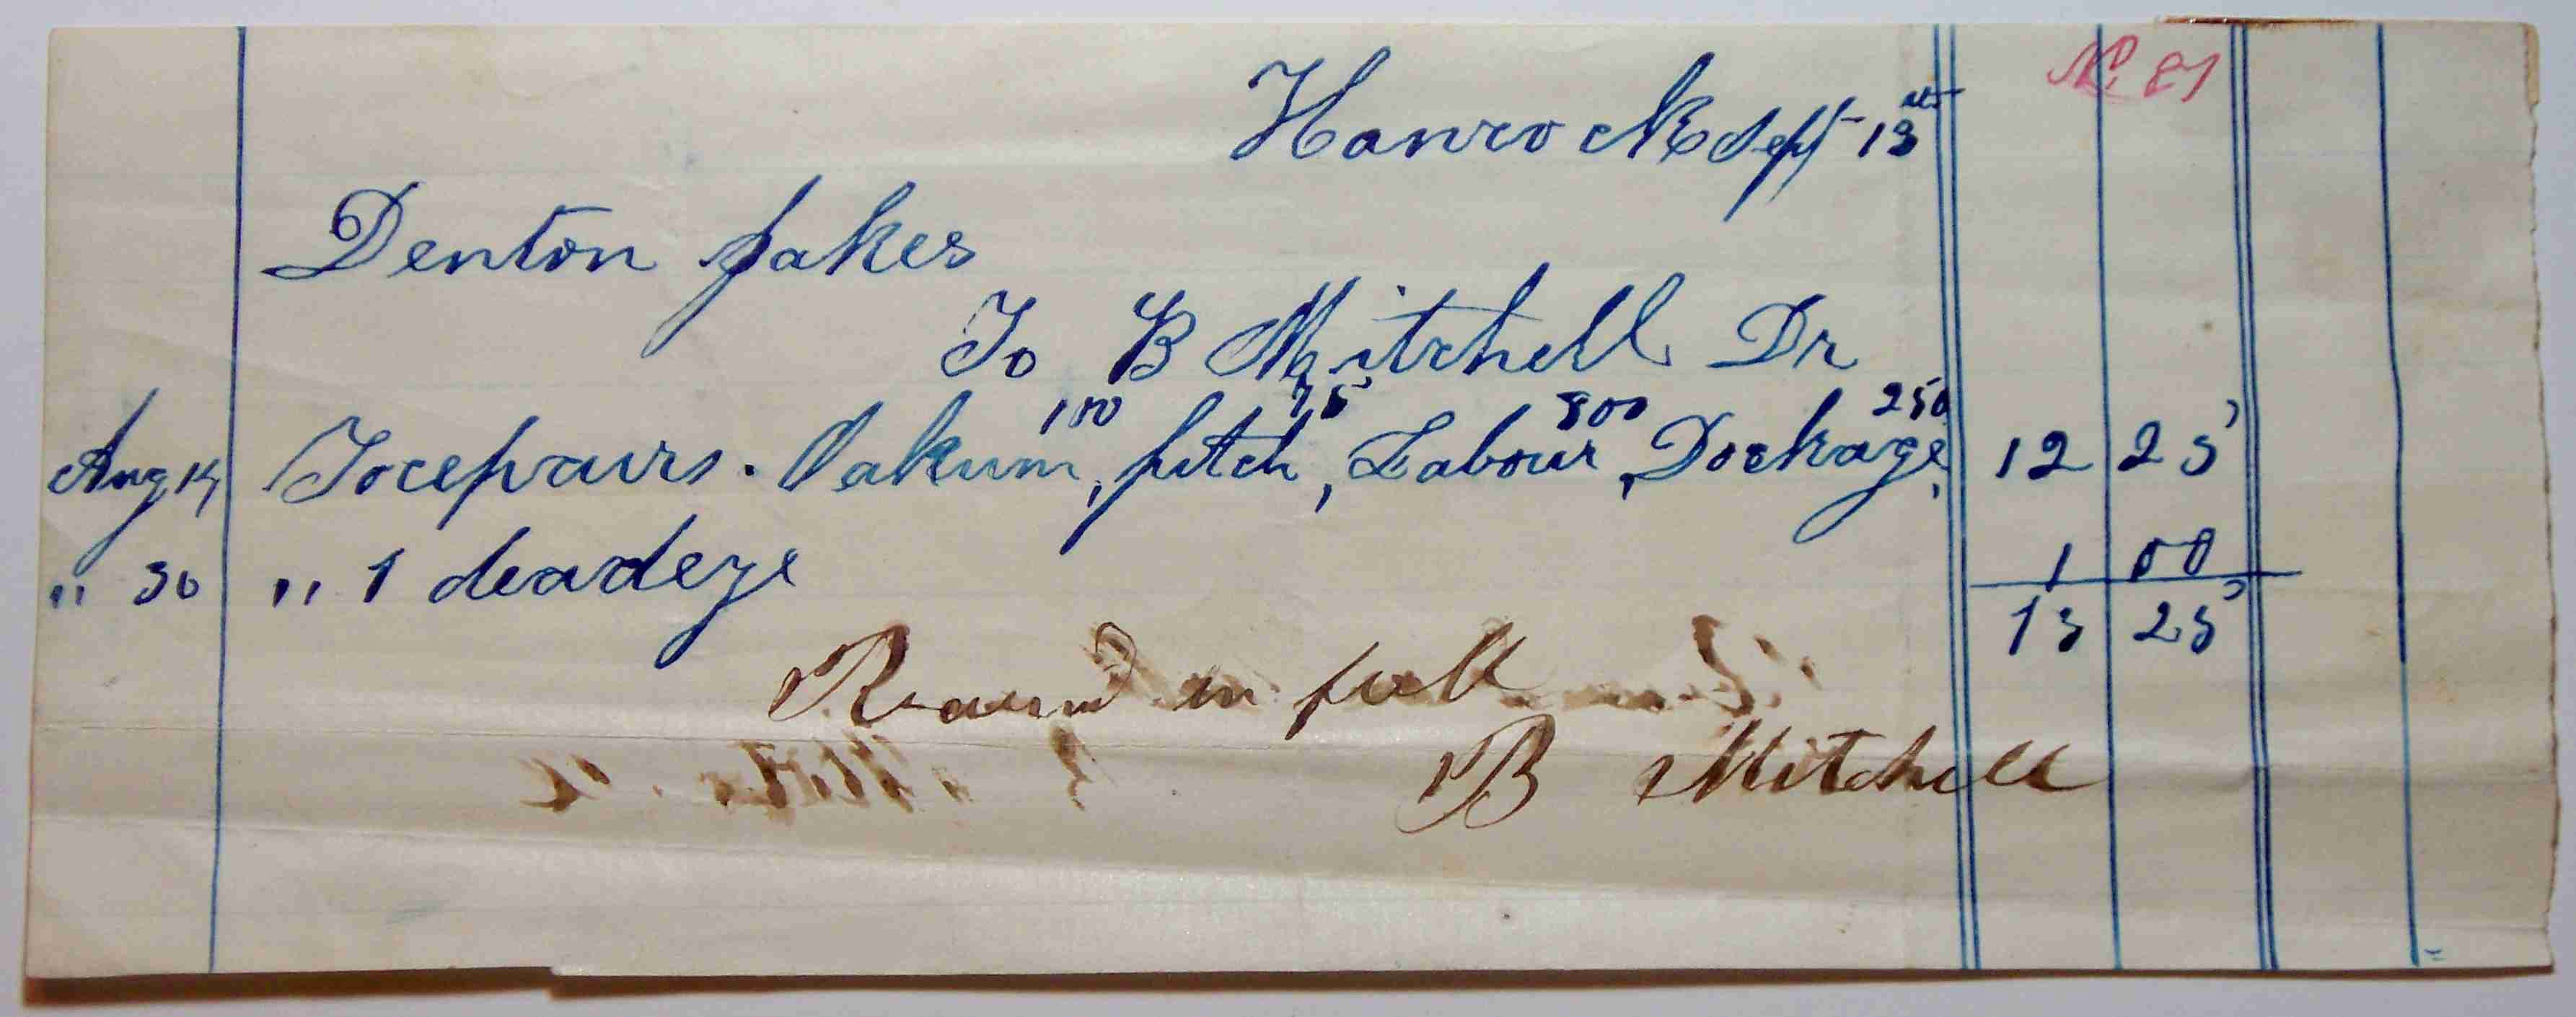 No 81
Hancock Sept 13
Denton Jakes
To B Mitchell Dr
100 75 800 250
Aug 14 To repairs. Oakum, pitch, Labour, Dockage, 12 25
" 30 " 1 deadeye 1 00
13 25
Received in full
B Mitchell